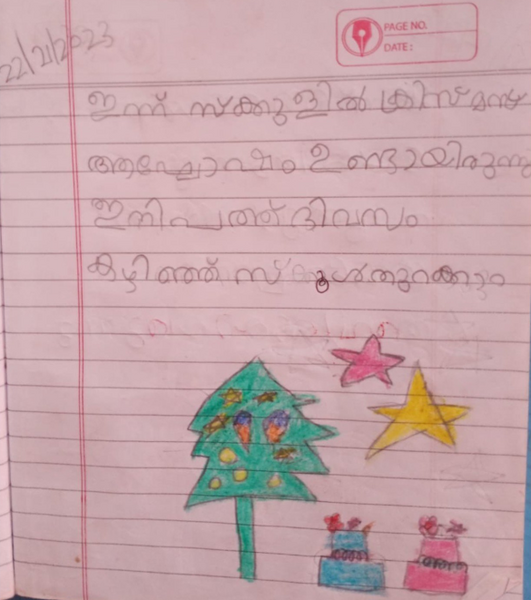 22/12/2023
PAGE NO.
DATE:
ഇന്ന് സ്ക്കൂളിൽ ക്രിസ്മസ്
ആഘോഷം ഉണ്ടായിരുന്നു
ഇനി പത്ത് ദിവസം
കഴിഞ്ഞ് സ്കൂൾ തുറക്കും